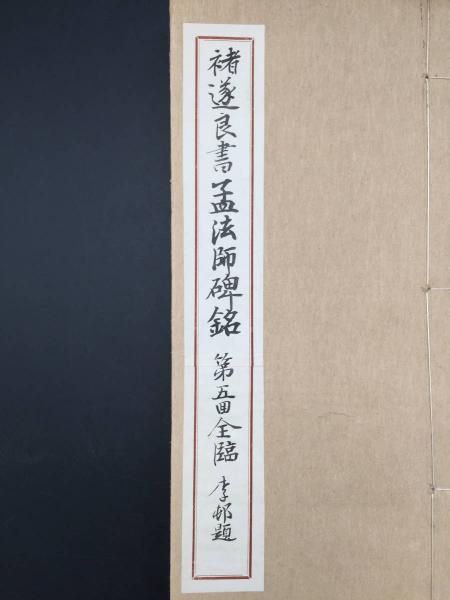 褚遂良書孟法師碑銘 第五回全臨 李邨題